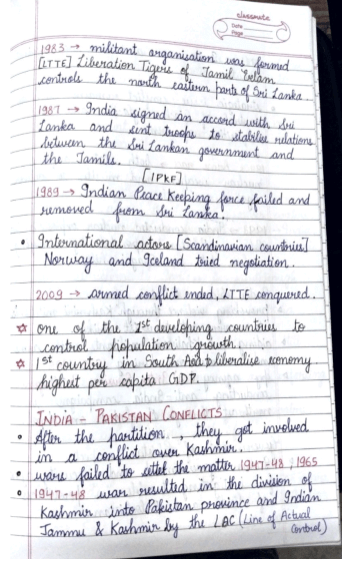 classmate
Date
Page
1983 → militant organisation was formed
[LTTE] Liberation Tigers of Tamil Eelam
controls the north eastern parts of Sri Lanka.
1987 → India signed an accord with Sri
Lanka and sent troops to stabilise relations
between the Sri Lankan government and
the Tamils.
[IPKF]
1989 → Indian Peace Keeping force failed and
removed from Sri Lanka.
• International actors [Scandinavian countries]
Norway and Iceland tried negotiation.
2009 → armed conflict ended, LTTE conquered.
☆ one of the 1st developing countries to
control population growth.
☆ 1st country in South Asia to liberalise economy
highest per capita GDP.
INDIA - PAKISTAN CONFLICTS
• After the partition, they got involved
in a conflict over Kashmir.
• wars failed to settel the matter 1947-48, 1965
• 1947-48 war resulted in the division of
Kashmir into Pakistan province and Indian
Jammu & Kashmir by the LAC (Line of Actual
Control)